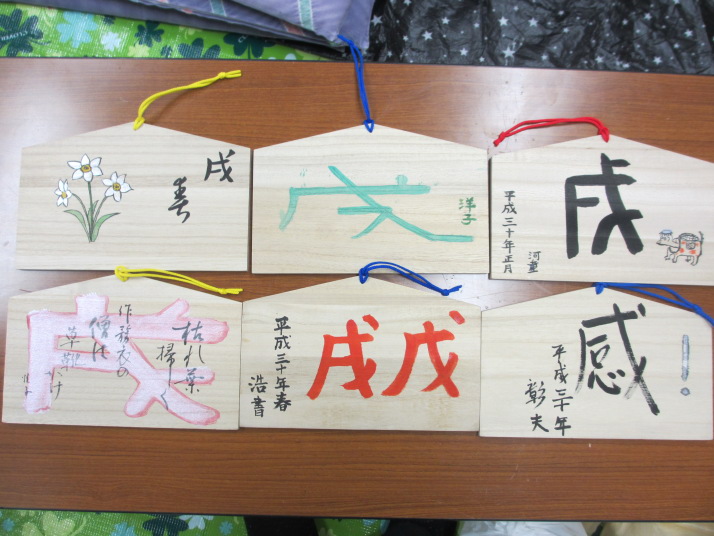 戌
春
戌
洋子
戌
平成三十年正月
河童
戌
枯れ葉
掃く
作務衣の
僧は
草鞋がけ
戊戌
平成三十年春
浩書
感！
平成三十年
彰夫